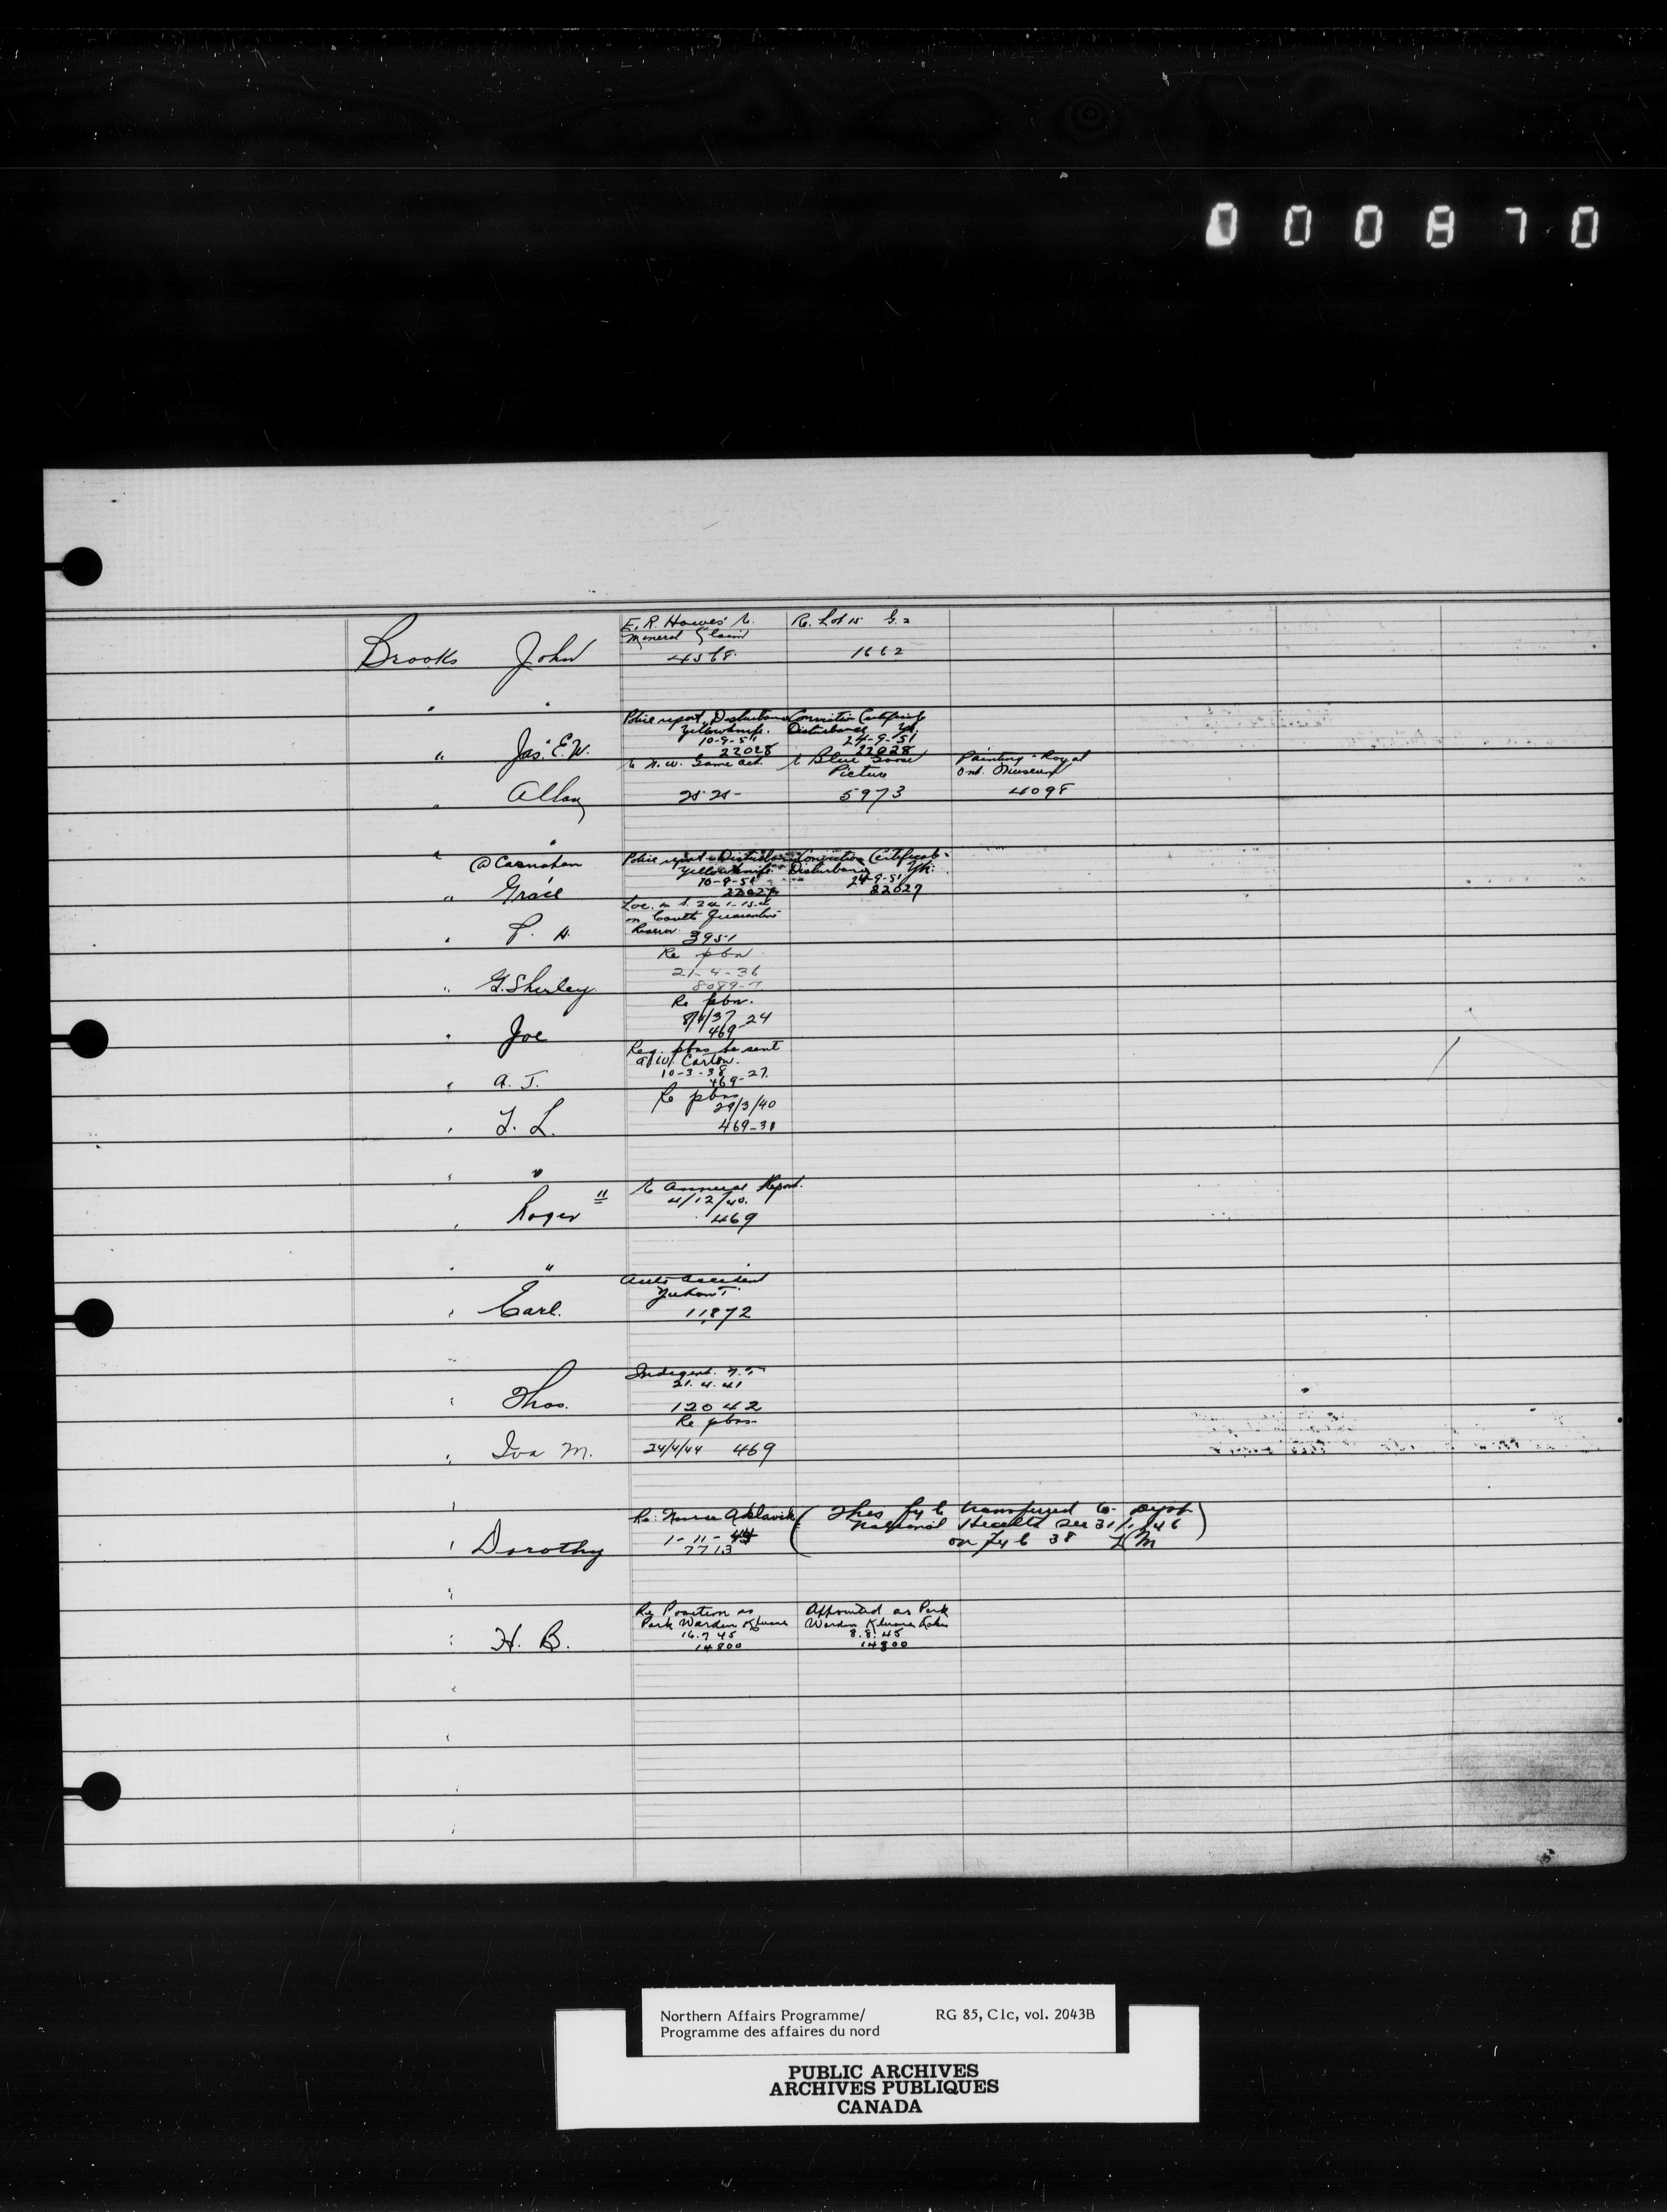 000870
E. R. Howes' re Mineral Claim
Re. Lot 15 G. 2
Brooks John 4568 1662
" "
Police report, Disturbance Yellowknife. 10-9-51 22028
Conviction Certificate Disturbance Yk. 24-9-51 22028
" Jas. E. W.
re N. W. Game Act.
re Blue Goose Picture
Painting Royal Ont. Museum
" Allan 5973 4098
" "
@ Carnahan
Police report Disturbance Yellowknife 10-9-51 22027
Conviction Certificate Disturbance Yk. 24-9-51 22027
" Grace
on South Quarantine Reserve. 3951
" P. H.
Re pbn 21-4-36 8089-
" G. Shirley
Re pbn. 469-24
" Joe
Req. pbns be sent
10-3-38 469-27
" A. J.
Re pbns 29/3/40
469-31
" L.
" "
re Annual Report.
4/12/40.
" Roger " 469
" "
Auto Accident
Yukon T.
" Earl. 11872
"
Indigent. Y.T.
21.4.41
" Thos. 12042
Re pbns
" Iva M. 24/4/44 469
"
Re: Nurse Aklavik
1-11-44
7713
( This transferred to Dept.
National Health
on 38 )
" Dorothy
"
Re Position as
Park Warden Kluane
16.7.45
14800
Appointed as Park
Warden Kluane Lake
8.8.45
14800
" H. B.
"
"
"
"
Northern Affairs Programme/ RG 85, C1c, vol. 2043B
Programme des affaires du nord
PUBLIC ARCHIVES
ARCHIVES PUBLIQUES
CANADA